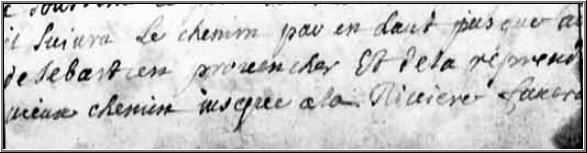 il suivra Le chemin par en haut jusque a
de sebastien provencher Et de la reprend
vieux chemin jusque a la Riviere